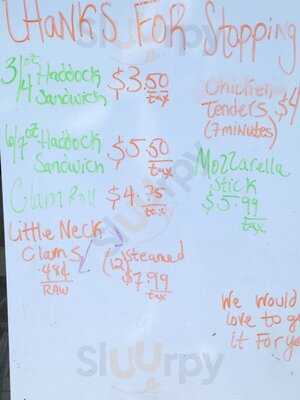 THANKS FOR Stopping
3/4 oz Haddock Sandwich $3.50 tax
Chicken Tenders $4
(7 minutes)
6/7 oz Haddock Sandwich $5.50 tax
Mozzarella Stick $5.99 tax
Clam Roll $4.75 tax
Little Neck Clams
.48¢ RAW
(12) Steamed $7.99 tax
We Would
love to g
it For yo
Sluurpy